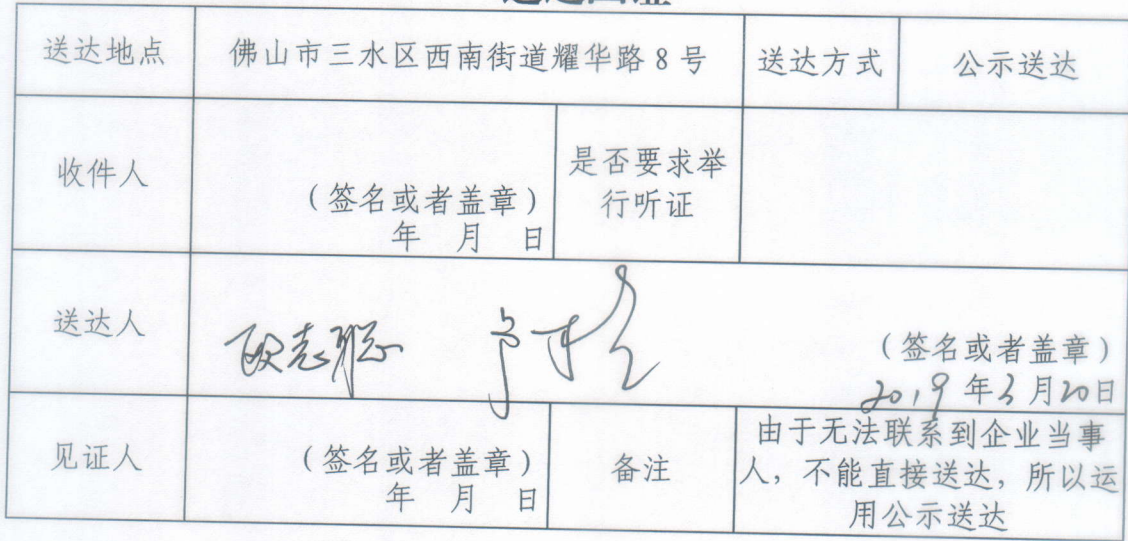 送达地点 佛山市三水区西南街道耀华路 8 号 送达方式 公示送达
收件人 (签名或者盖章) 年 月 日 是否要求举行听证
送达人 (签名或者盖章)
2019 年 3 月 20 日
见证人 (签名或者盖章) 年 月 日 备注 由于无法联系到企业当事人，不能直接送达，所以运用公示送达